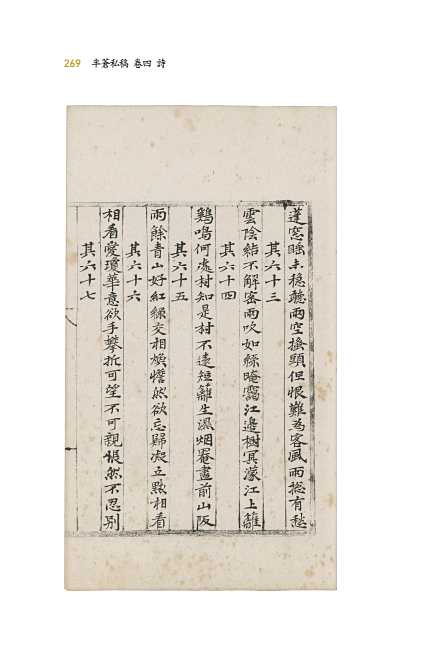 269 半蒼私稿 卷四 詩
蓬窓睡未穩聽雨空搔頭但恨難為客風雨摠有愁
其六十三
雲陰結不解密雨吹如絲晻靄江邊樹冥濛江上籬
其六十四
鷄鳴何處村知是村不遠短籬生濕烟罨畫前山阪
其六十五
雨餘青山好紅綠交相嬌憺然欲忘歸凝立黙相看
其六十六
相看愛瓊華意欲手攀折可望不可親悵然不忍別
其六十七